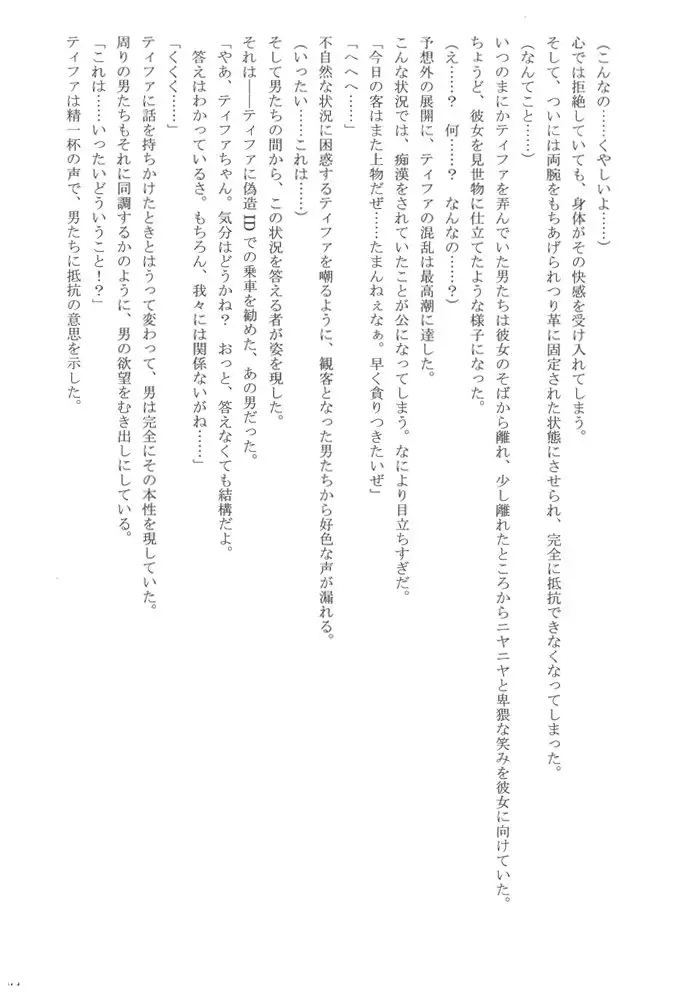 （こんなの……くやしいよ……）
心では拒絶していても、身体がその快感を受け入れてしまう。
そして、ついには両腕をもちあげられつり革に固定された状態にさせられ、完全に抵抗できなくなってしまった。
（なんてこと……）
いつのまにかティファを弄んでいた男たちは彼女のそばから離れ、少し離れたところからニヤニヤと卑猥な笑みを彼女に向けていた。
ちょうど、彼女を見世物に仕立てたような様子になった。
（え……？　何……？　なんなの……？）
予想外の展開に、ティファの混乱は最高潮に達した。
こんな状況では、痴漢をされていたことが公になってしまう。なにより目立ちすぎだ。
「今日の客はまた上物だぜ……たまんねぇなぁ。早く貪りつきたいぜ」
「へへへ……」
不自然な状況に困惑するティファを嘲るように、観客となった男たちから好色な声が漏れる。
（いったい……これは……）
そして男たちの間から、この状況を答える者が姿を現した。
それは――ティファに偽造IDでの乗車を勧めた、あの男だった。
「やあ、ティファちゃん。気分はどうかね？　おっと、答えなくても結構だよ。
答えはわかっているさ。もちろん、我々には関係ないがね……」
「くくく……」
ティファに話を持ちかけたときとはうって変わって、男は完全にその本性を現していた。
周りの男たちもそれに同調するかのように、男の欲望をむき出しにしている。
「これは……いったいどういうこと！？」
ティファは精一杯の声で、男たちに抵抗の意思を示した。